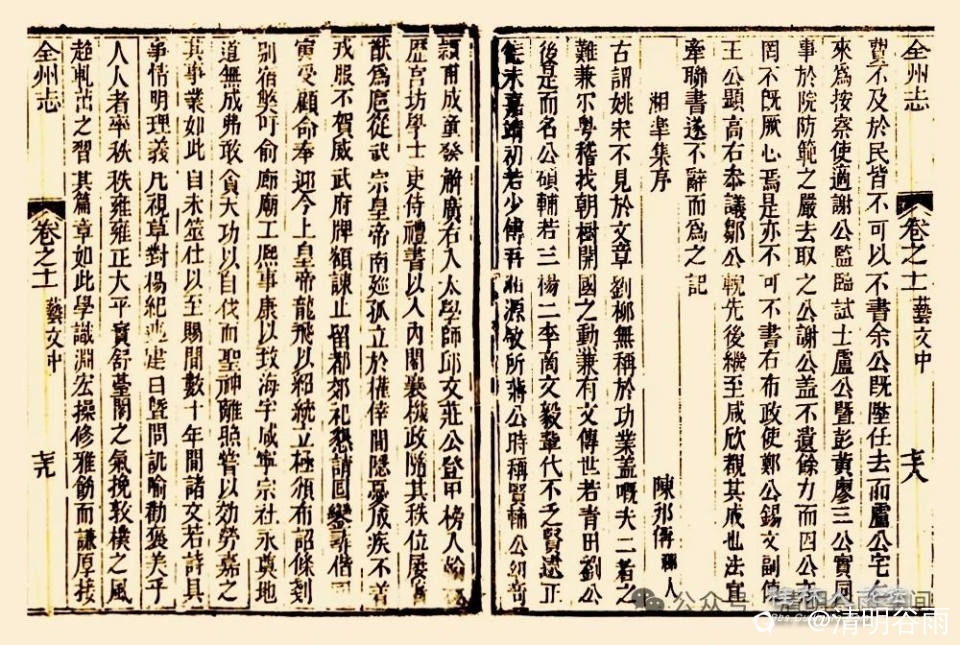 全州志 卷之十一 藝文中
費不及於民皆不可以不書余公既陞任去而盧公宅
來為按察使適謝公監臨試士盧公暨彭黃廖三公實同
事於院防範之嚴去取之公謝公蓋不遺餘力而四公
罔不既厥心焉是亦不可不書右布政使鄭公錫文副使
王公顯高右叅議鄒公輗先後繼至咸欣觀其成也法宜
牽聯書遂不辭而為之記
湘皋集序 陳邦偁 人
古謂姚宋不見於文章劉柳無稱於功業蓋嘅夫二者之
難兼尒粵稽我朝樹開國之勳兼有文傳世若青田劉公
後是而名公碩輔若三楊二李商文毅軰代不乏賢逮正
德末嘉靖初若少傅吾湘源敬所蔣公時稱賢輔公初奇
穎甫成童發解廣右入太學師邱文莊公登甲榜入翰
歷宮坊學士吏侍禮書以入內閣襄機政隨其秩位屢
猷為扈從武宗皇帝南廵孤立於權倖間隱憂成疾不着
戎服不賀威武府牌額諫止留都郊祀懇請回鑾 偕同
寅受顧命奉迎今上皇帝龍飛以紹統立極頒布詔條剗
別宿弊吁俞廊廟工熈事康以致海宇咸寧宗社永奠地
道無成弗敢貪天功以自伐而聖神離照嘗以効勞嘉之
其事業如此自未筮仕以至賜閒數十年間諸文若詩具
事情明理義凡視草對揚紀述建白暨問訊喻勸褒美乎
人人者率秩秩雍雍正大平實舒臺閣之氣挽敦樸之風
軋出之習其篇章如此學識淵宏操修雅飭而謙厚接
全州志 卷之十一 藝文中
公众号
@清明谷雨